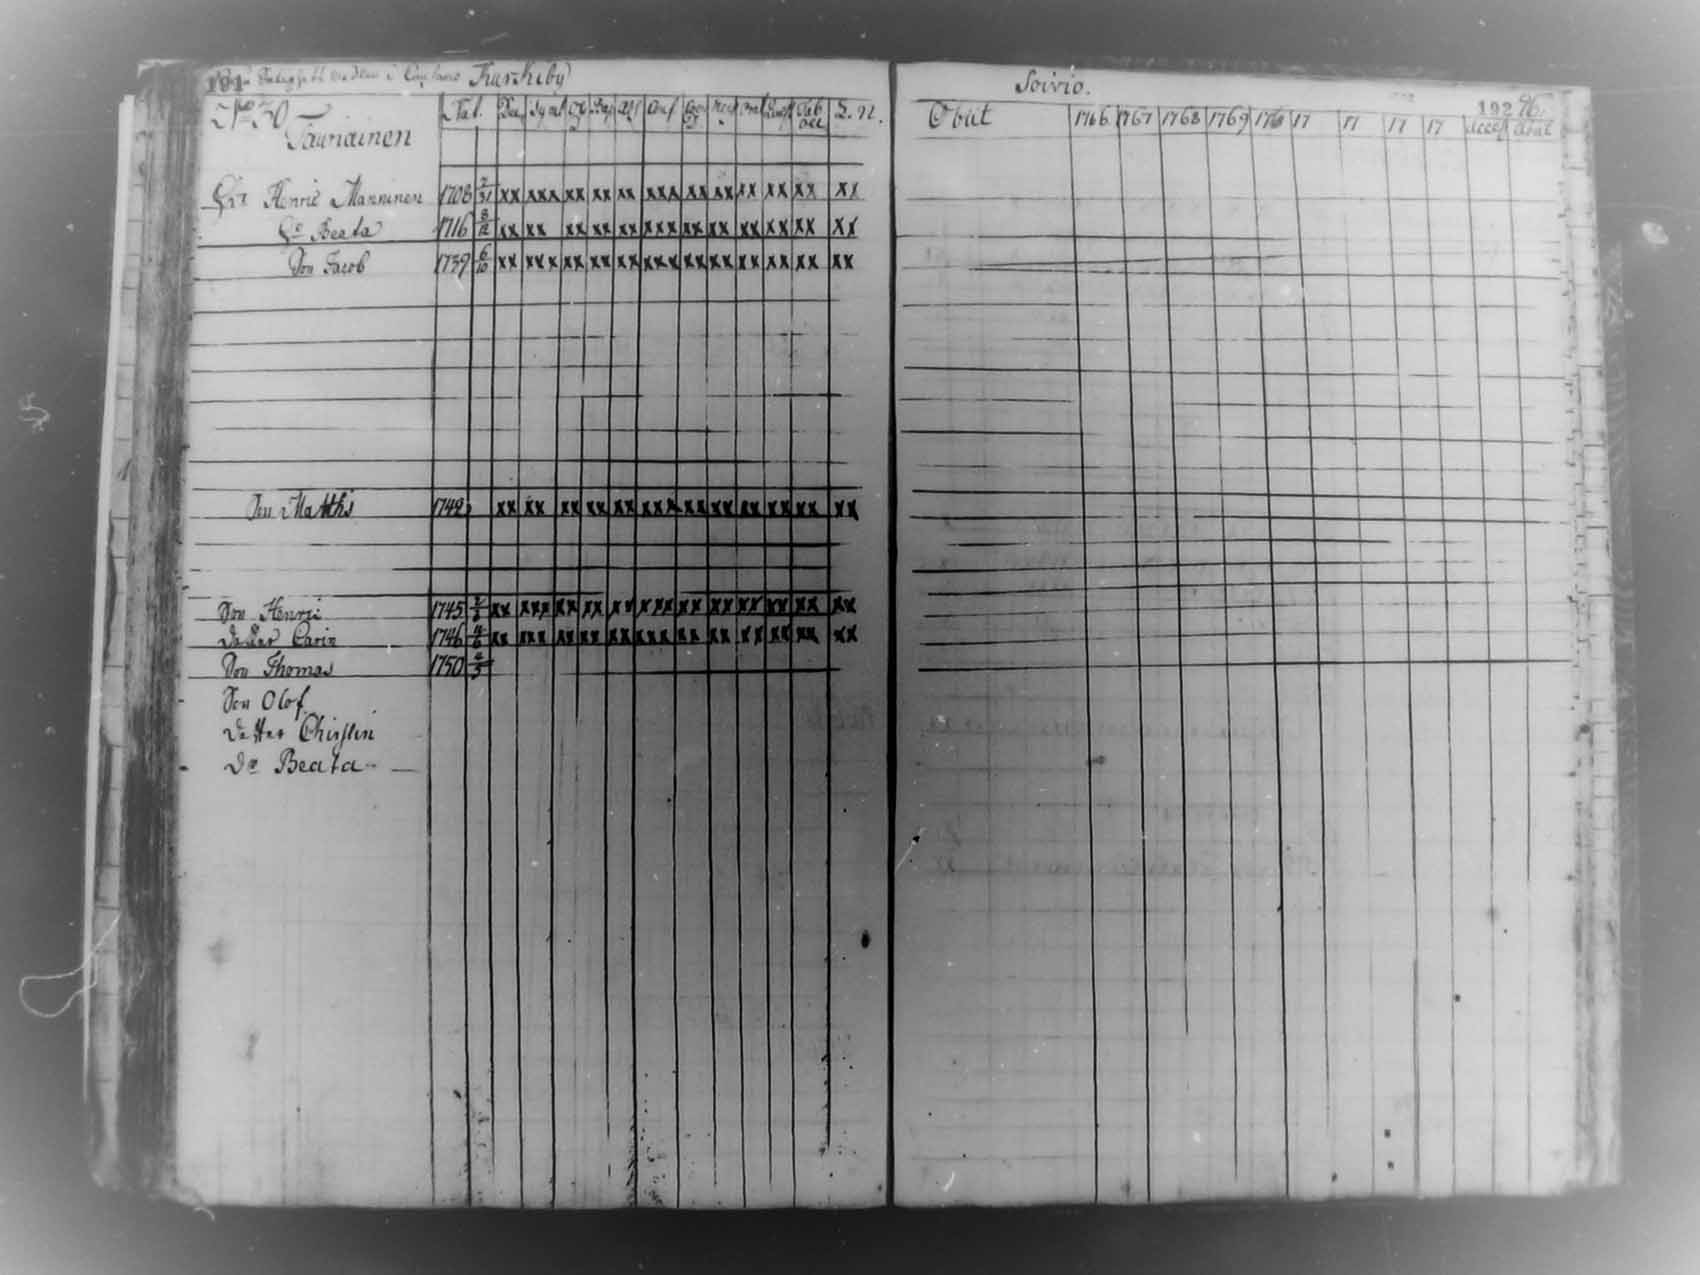 191 Kurckby
No 30 Nat. L. N.
Tauriainen
Henric Manninen 1708 2/31 xx xxx xx xx xx xxx xx xx xx xx xx xx
Beata 1716 8/12 xx xx xx xx xx xxx xx xx xx xx xx xx
Son Jacob 1739 6/10 xx xxx xx xx xx xxx xx xx xx xx xx xx
Son Matths 1742 xx xx xx xx xx xxx xx xx xx xx xx xx
Son Henric 1745 xx xxx xx xx xx xxx xx xx xx xx xx xx
Dotter Carin 1746 xx xxx xx xx xx xxx xx xx xx xx xx xx
Son Thomas 1750
Son Olof
Dotter Christin
Do Beata
Soivio.
192 96.
Obiit 1766 1767 1768 1769 17 17 17 17 Accef Abiit